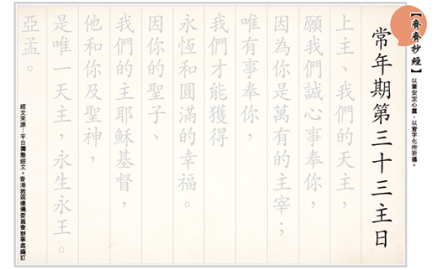 【齊齊抄經】
以筆安定心靈，以習字化作祈禱。
常年期第三十三主日
上主、我們的天主，
願我們誠心事奉你，
因為你是萬有的主宰；
唯有事奉你，
我們才能獲得
永恆和圓滿的幸福。
因你的聖子、
我們的主耶穌基督，
他和你及聖神，
是唯一天主，永生永王。
亞孟。
經文來源：平日彌撒經文，香港教區禮儀委員會辦事處編訂